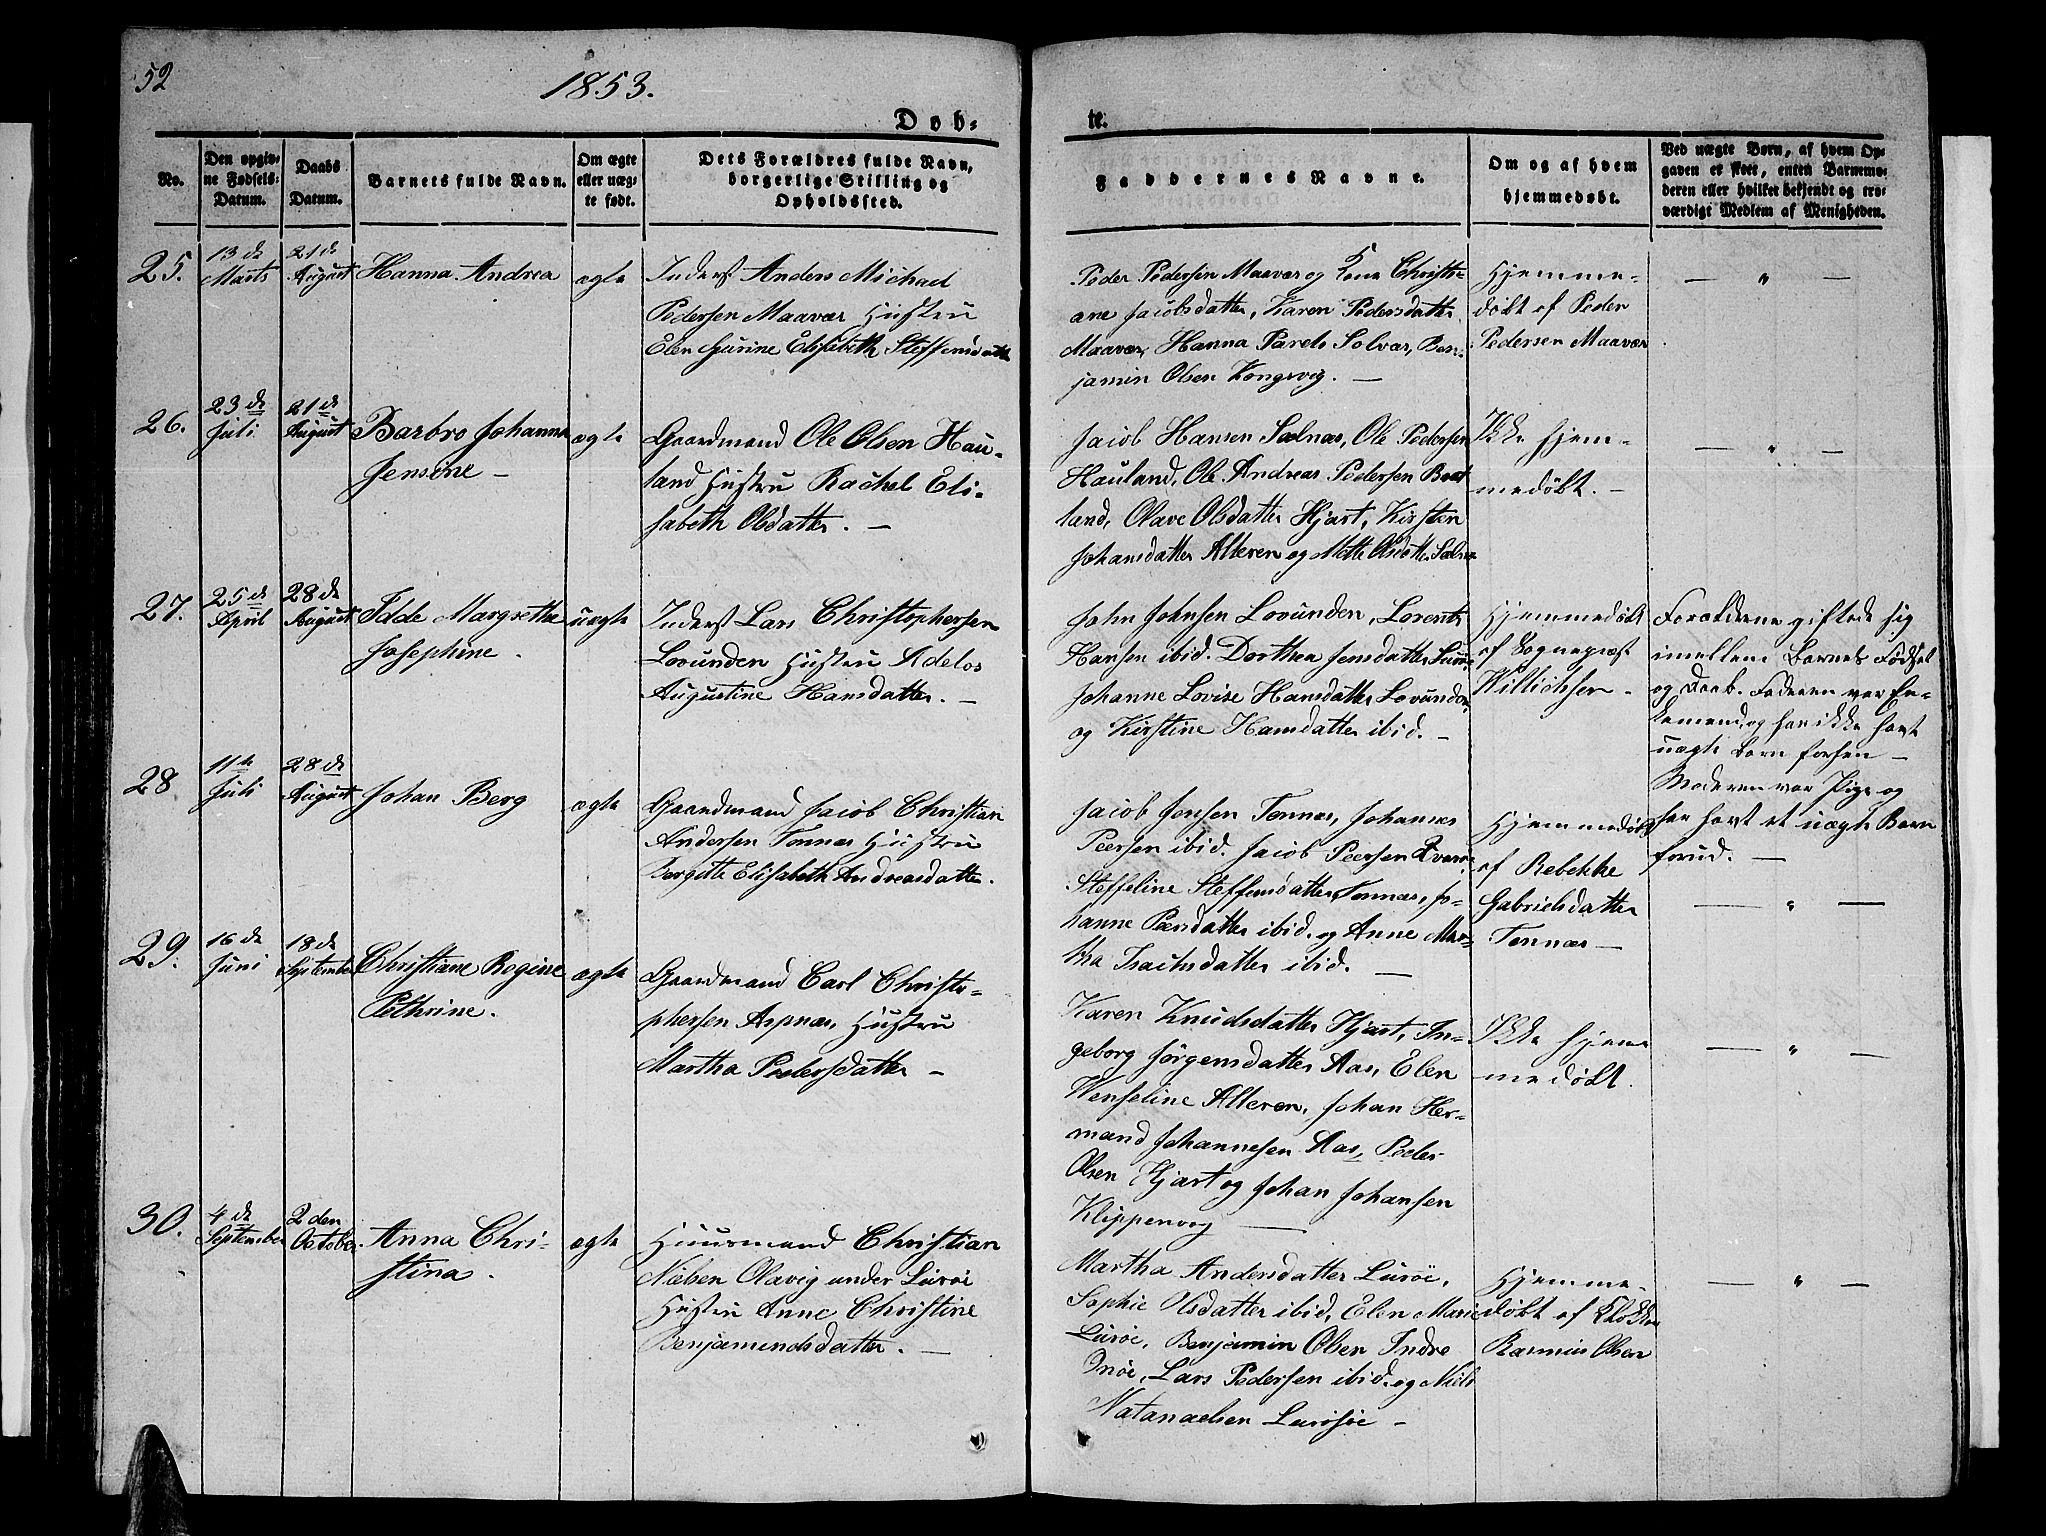 52
1853.
Dob-
te.
No.
Den opgiv-
ne Fødsels-
Datum.
Daabs
Datum.
Barnets fulde Navn.
Om ægte
eller uæg-
te født.
Dets Forældres fulde Navn,
borgerlige Stilling og
Opholdssted.
Faddernes Navne.
Om og af hvem
hjemmedøbt.
Ved uægte Børn, af hvem Op-
gaven er skeet, enten Barnemo-
deren eller hvilket bekjendt og tro-
værdigt Medlem af Menigheden.
25.
13de
Marts
21de
August
Hanna Andrea
ægte
Inderst Anders Michael
Pedersen Maavær Hustru
Elen Gurine Elisabeth Steffensdatter
Peder Pedersen Maavær og Kone Christi-
ane Jacobsdatter, Karen Pedersdatter
Maavær, Hanna Parels Solvær, Ben-
jamin Olsen Kongsvig. —
Hjemme-
døbt af Peder
Pedersen Maavær
— " —
26.
23de
Juli
21de
August
Barbro Johanna
Jensine —
ægte
Gaardmand Ole Olsen Hau-
land Hustru Rachel Eli-
sabeth Olsdatter. —
Jacob Hansen Selnæs, Ole Pedersen
Hauland, Ole Andreas Pedersen Brat
land, Olave Olsdatter Hjart, Kirsten
Johansdatter Alteren og Mette Olsdatter Selnæs
Ikke hjem-
medøbt. —
— " —
27.
25de
April
28de
August
Idde Margretha
Josephine.
uægte
Inderst Lars Christophersen
Lovunden Hustru Adelos
Augustine Hansdatter. —
John Johnsen Lovunden, Lorents
Hansen ibid. Dorthea Jensdatter
Johanne Lovise Hansdatter Lovunden
og Kirstine Hansdatter ibid. —
Hjemmedøbt
af Sognepræst
Willichsen —
Forældrene giftede sig
imellem Barnets Fødsel
og Daab. Faderen var En-
kemand og har ikke havt
uægte Børn forhen —
Moderen var Pige og
har havt et uægte Barn
forud. —
28
11te
Juli
28de
August
Johan Berg
ægte
Gaardmand Jacob Christian
Andersen Tonnæs Hustru
Bergitte Elisabeth Andreasdatter.
Jacob Jensen Tonnæs, Johannes
Peersen ibid. Jacob Peersen
Steffeline Steffensdatter Tonnæs, Jo-
hanne Peersdatter ibid. og Anne Mar-
tha Isachsdatter ibid. —
Hjemmedøbt
af Rebekke
Gabrielsdatter
Tonnæs —
— " —
29.
16de
Juni
18de
September
Christiane Regine
Pethrine.
ægte
Gaardmand Carl Christo-
phersen Aspnæs, Hustru
Martha Pedersdatter —
Karen Knudsdatter Hjart, In-
geborg Jörgensdatter Aas, Elen
Wenseline Alteren, Johan Her-
mand Johannesen Aas, Peder
Olsen Hjart og Johan Johansen
Klippenvog —
Ikke hjem
medøbt.
— " —
30.
4de
September
2den
October.
Anna Chri-
stina.
ægte
Huusmand Christian
Nilsen Olavig under Luröe
Hustru Anne Christine
Benjamendsdatter. —
Martha Andersdatter Luröe,
Sophie Olsdatter ibid, Elen Marie
Luröe, Benjamin Olsen Indre
Onöe, Lars Pedersen ibid. og Niels
Natanaelsen Luröe —
Hjemme-
døbt af
Rasmus Olsen
— " —